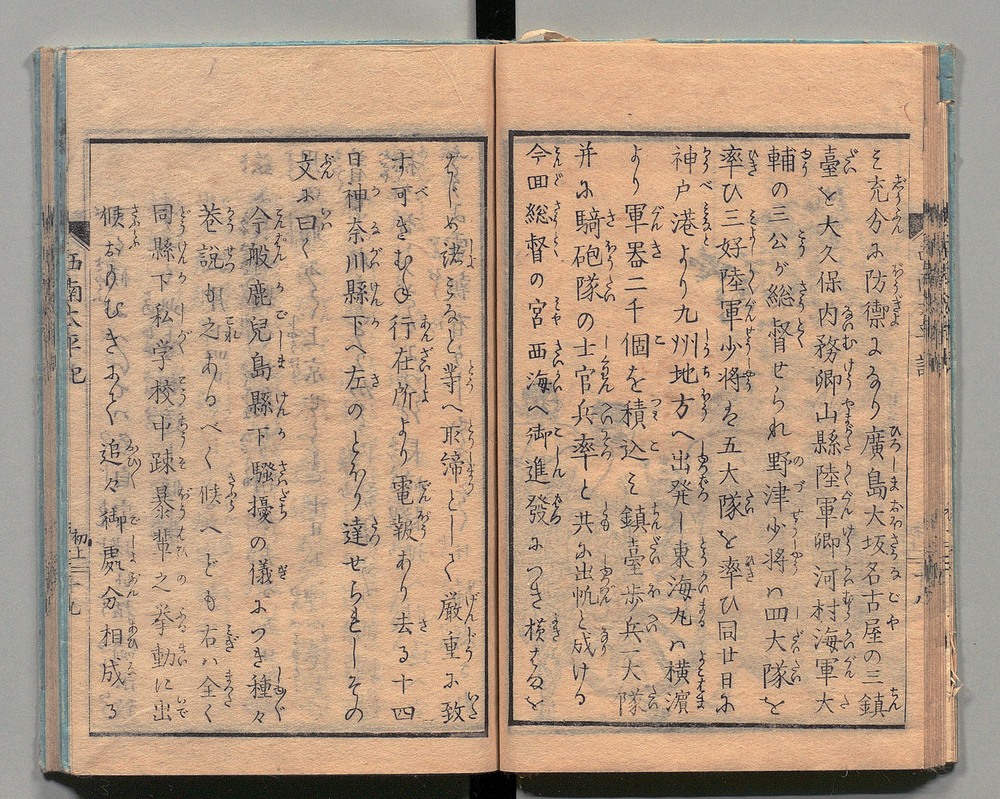 え充分に防禦になり廣島大坂名古屋の三鎮
臺を大久保内務卿山縣陸軍卿河村海軍大
輔の三公が総督せられ野津少将ハ四大隊を
率ひ三好陸軍少将は五大隊を率ひ同廿日に
神戸港より九州地方へ出発し東海丸ハ横濱
より軍器二千個を積込え鎮臺歩兵一大隊
并に騎砲隊の士官兵率と共に出帆と成ける
今回総督の宮西海へ御進發につき横はまを
はじめ諸みなと等へ取締として厳重に致
す可きむね行在所より電報あり去る十四
日神奈川縣下へ左のとおり達せられしその
文に曰く
今般鹿児島縣下騒擾の儀につき種々
巷説も之あるべく候へども右ハ全く
同縣下私学校中疎暴輩之挙動に出
候おもむきにて追々御處分相成る
西南太平記
初上
十九